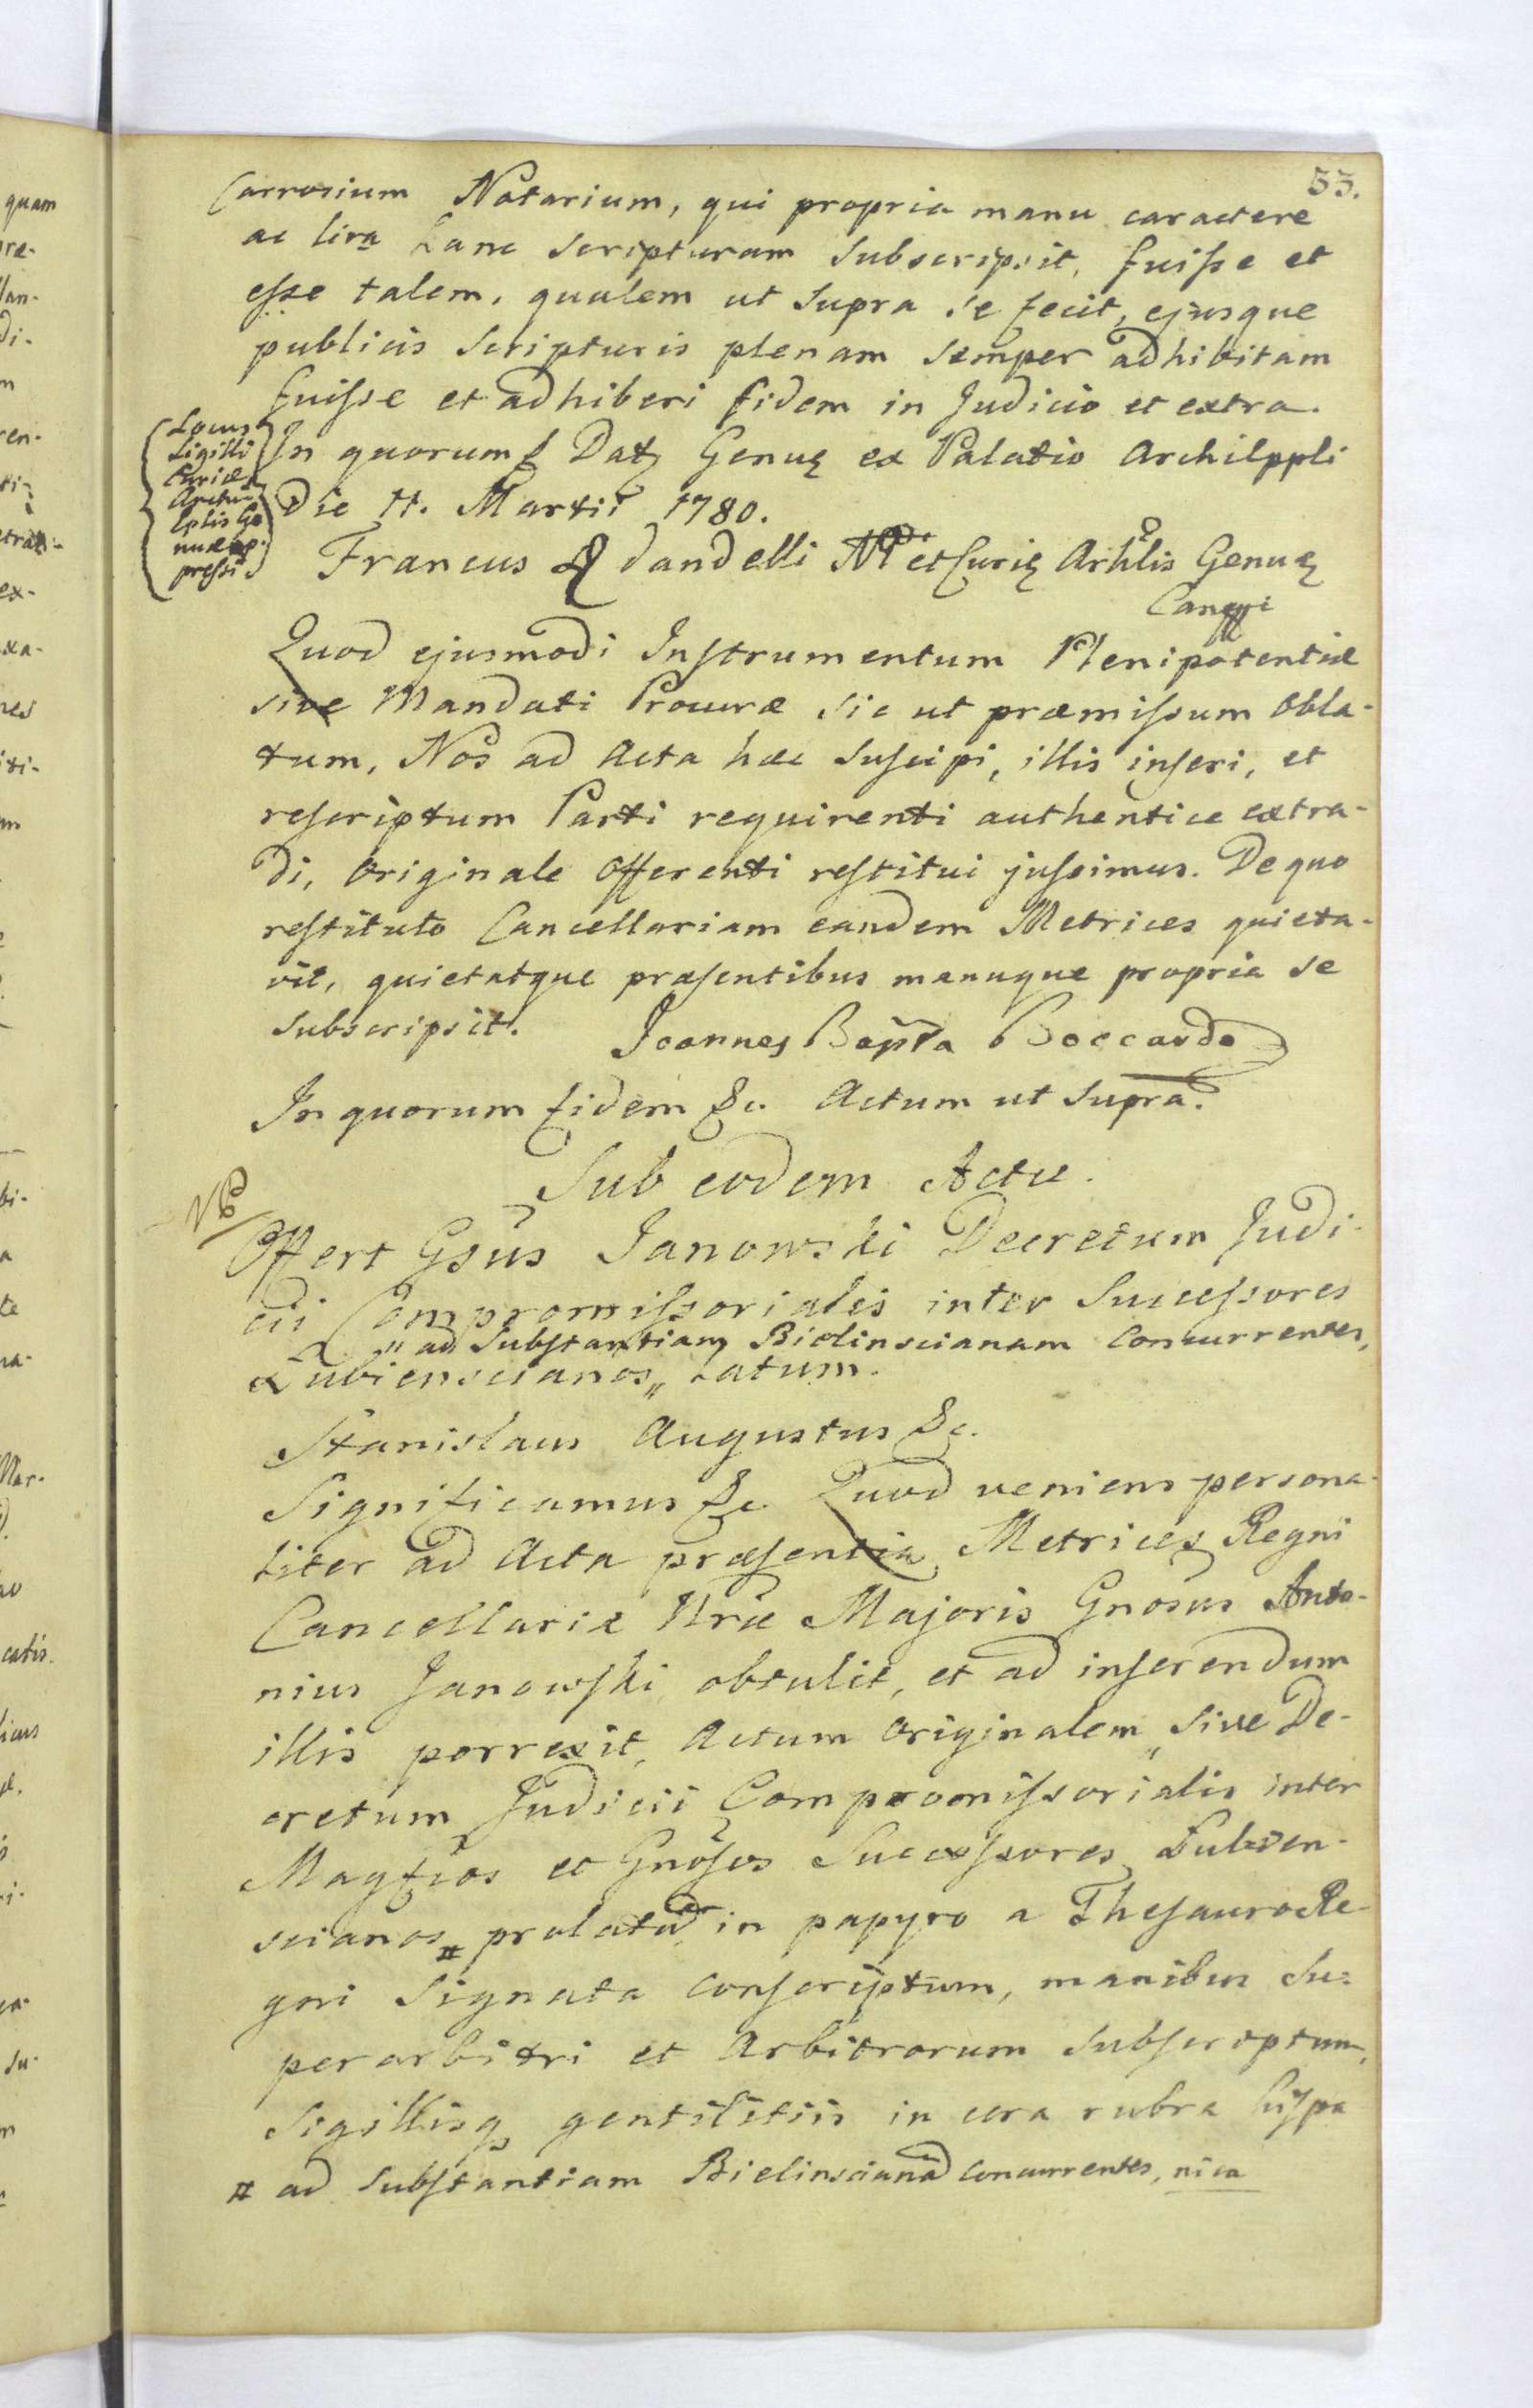 53.
Carrosium Notarium, qui propria manu caractere
ac lira hanc scripturam subscripsit, fuisse et
esse talem, qualem ut supra se fecit, ejusque
publicis scripturis plenam semper adhibitam
fuisse et adhiberi fidem in Judicio et extra.
Locus
Sigilli
Curiæ
Archi-
Eplis Ge
nuæ ap-
pressi
In quorum Datę Genuę ex Palatio Archilppli
Die 11. Martii 1780.
Francus Dandelli et Curię Genuę
Quod ejusmodi Instrumentum Plenipotentiæ
sive Mandati Procuræ sic ut præmissum obla-
tum, Nos ad Acta hæc suscipi, illis inseri, et
rescriptum Parti requirenti authentice extra-
di, Originale Offerenti restitui jussimus. De quo
restituto Cancellariam eandem Metrices quieta-
vit, quietatque præsentibus manuque propria se
subscripsit. Joannes Bapta Boccardo
In quorum fidem &c. Actum ut supra.
Sub eodem Actu.
NB
Offert Gsus Janowski Decretum Judi-
cii Compromissorialis inter Successores
" ad Substantiam Bielinscianam Concurrentes,
Lubienscianos " latum.
Stanislaus Augustus &c.
Significamus &c. Quod veniens persona-
liter ad Acta præsentia Metrices Regni
Cancellariæ Nræ Majoris Gnosus Anto-
nius Janowski obtulit, et ad inserendum
illis porrexit, Actum Originalem, sive De-
cretum Judicii Compromissorialis inter
Magfcos et Gnosos Successores Lubien-
scianos # prolatum in papyro a Thesauro Re-
gni Signata conscriptum, manibus Su-
perarbitri et Arbitrorum subscriptum,
Sigillisq gentilitiis in cera rubra hispa
# ad Substantiam Bielinscianam concurrentes, nica